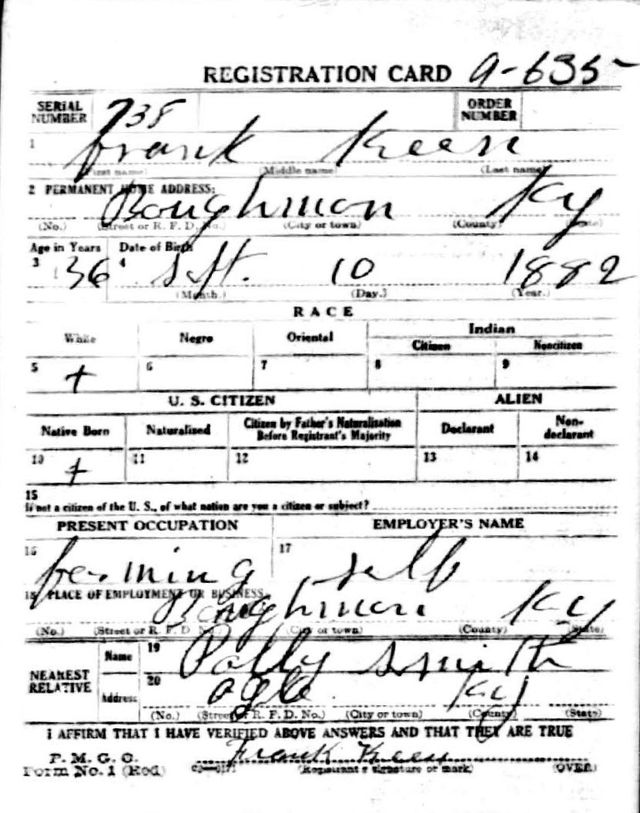 REGISTRATION CARD 9-635
SERIAL NUMBER 738 ORDER NUMBER
1 Frank Keen
(First name) (Middle name) (Last name)
2 PERMANENT HOME ADDRESS:
Boughmon Ky
(No.) (Street or R. F. D. No.) (City or town) (County) (State)
Age in Years Date of Birth
3 36 4 Sept. 10 1882
(Month.) (Day.) (Year.)
RACE
White Negro Oriental Indian
Citizen Noncitizen
5 + 6 7 8 9
U. S. CITIZEN ALIEN
Native Born Naturalized Citizen by Father's Naturalization Before Registrant's Majority Declarant Non-declarant
10 + 11 12 13 14
15
If not a citizen of the U. S., of what nation are you a citizen or subject?
PRESENT OCCUPATION EMPLOYER'S NAME
16 farming 17 self
18 PLACE OF EMPLOYMENT OR BUSINESS:
Boughmon Ky
(No.) (Street or R. F. D. No.) (City or town) (County) (State)
NEAREST RELATIVE Name 19 Polly Smith
Address 20 Ogle Ky
(No.) (Street or R. F. D. No.) (City or town) (County) (State)
I AFFIRM THAT I HAVE VERIFIED ABOVE ANSWERS AND THAT THEY ARE TRUE
P. M. G. O.
Form No. 1 (Red) Frank Keen
(Registrant's signature or mark) (OVER)